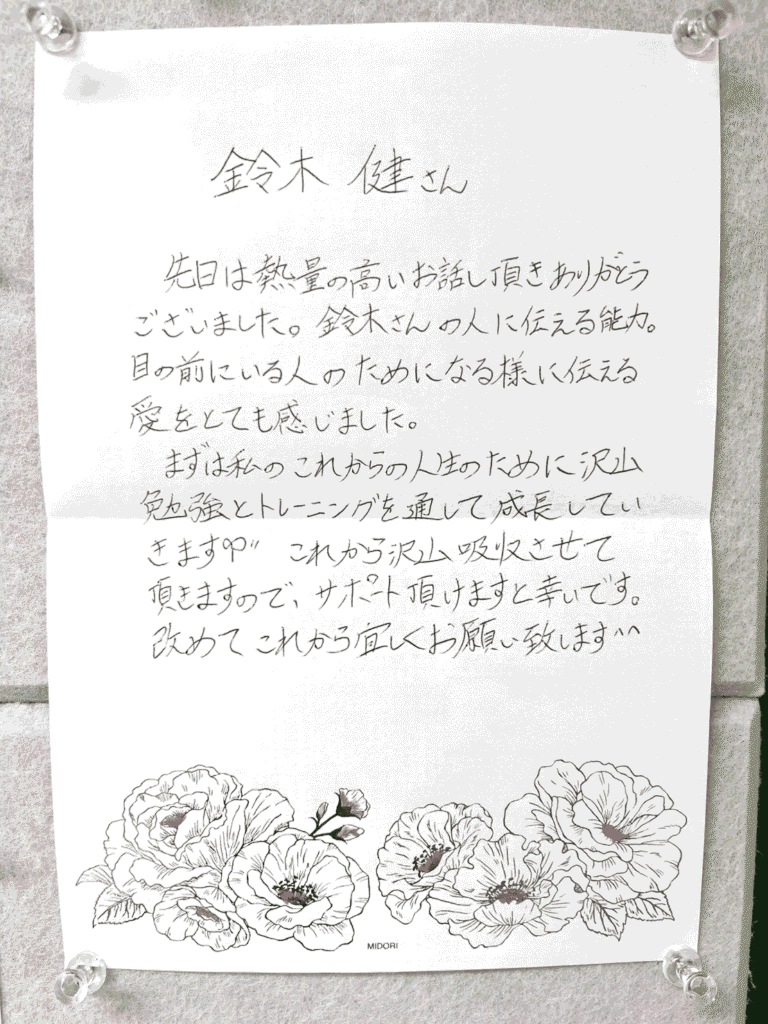 鈴木 健さん
先日は熱量の高いお話し頂きありがとう
ございました。鈴木さんの人に伝える能力。
目の前にいる人のためになる様に伝える
愛をとても感じました。
まずは私のこれからの人生のために沢山
勉強とトレーニングを通して成長してい
きます これから沢山吸収させて
頂きますので、サポート頂けますと幸いです。
改めてこれから宜しくお願い致します^^
MIDORI